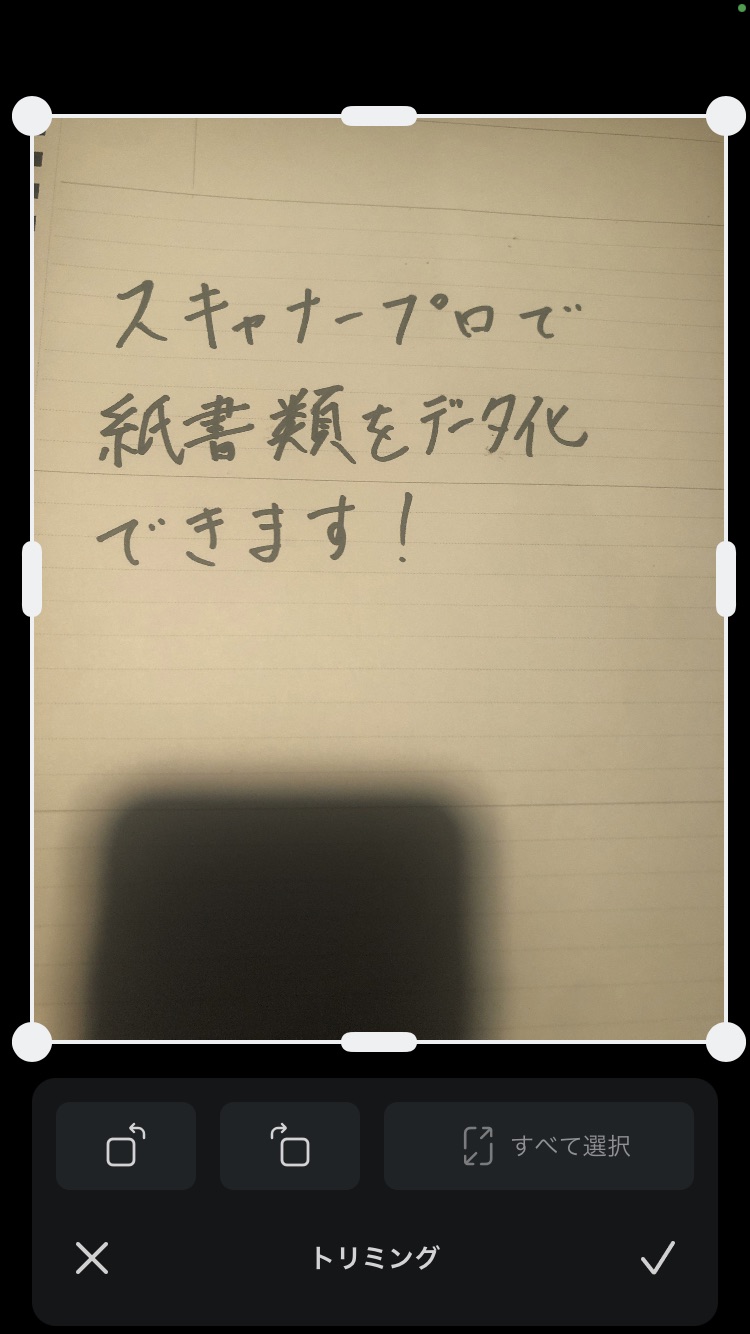 スキャナープロで
紙書類をデータ化
できます！
すべて選択
トリミング